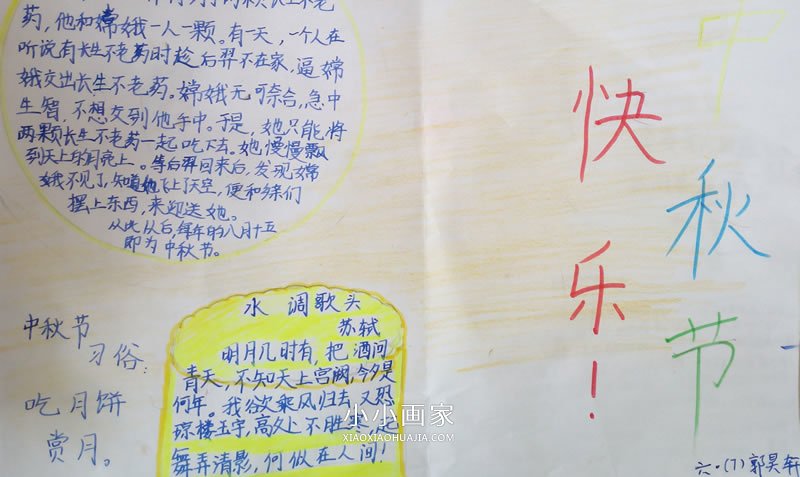 药，他和嫦娥一人一颗。有一天，一个人在
听说有长生不老药时趁后羿不在家，逼嫦
娥交出长生不老药。嫦娥无可奈合，急中
生智，不想交到他手中。于是，她只能将
两颗长生不老药一起吃下去。她慢慢飘
到天上的月亮上。等后羿回来后，发现嫦
娥不见了，知道她飞上了天空，便和乡亲们
摆上东西，来迎送她。
从此从后，每年的八月十五
即为中秋节。
中秋节
习俗：
吃月饼
赏月。
水调歌头
苏轼
明月几时有，把酒问
青天，不知天上宫阙，今夕是
何年。我欲乘风归去，又恐
琼楼玉宇，高久上不胜寒，起
舞弄清影，何似在人间！
中秋节
快乐！
六·(7)郭昊轩
小小画家
XIAOXIAOHUAJIA.COM